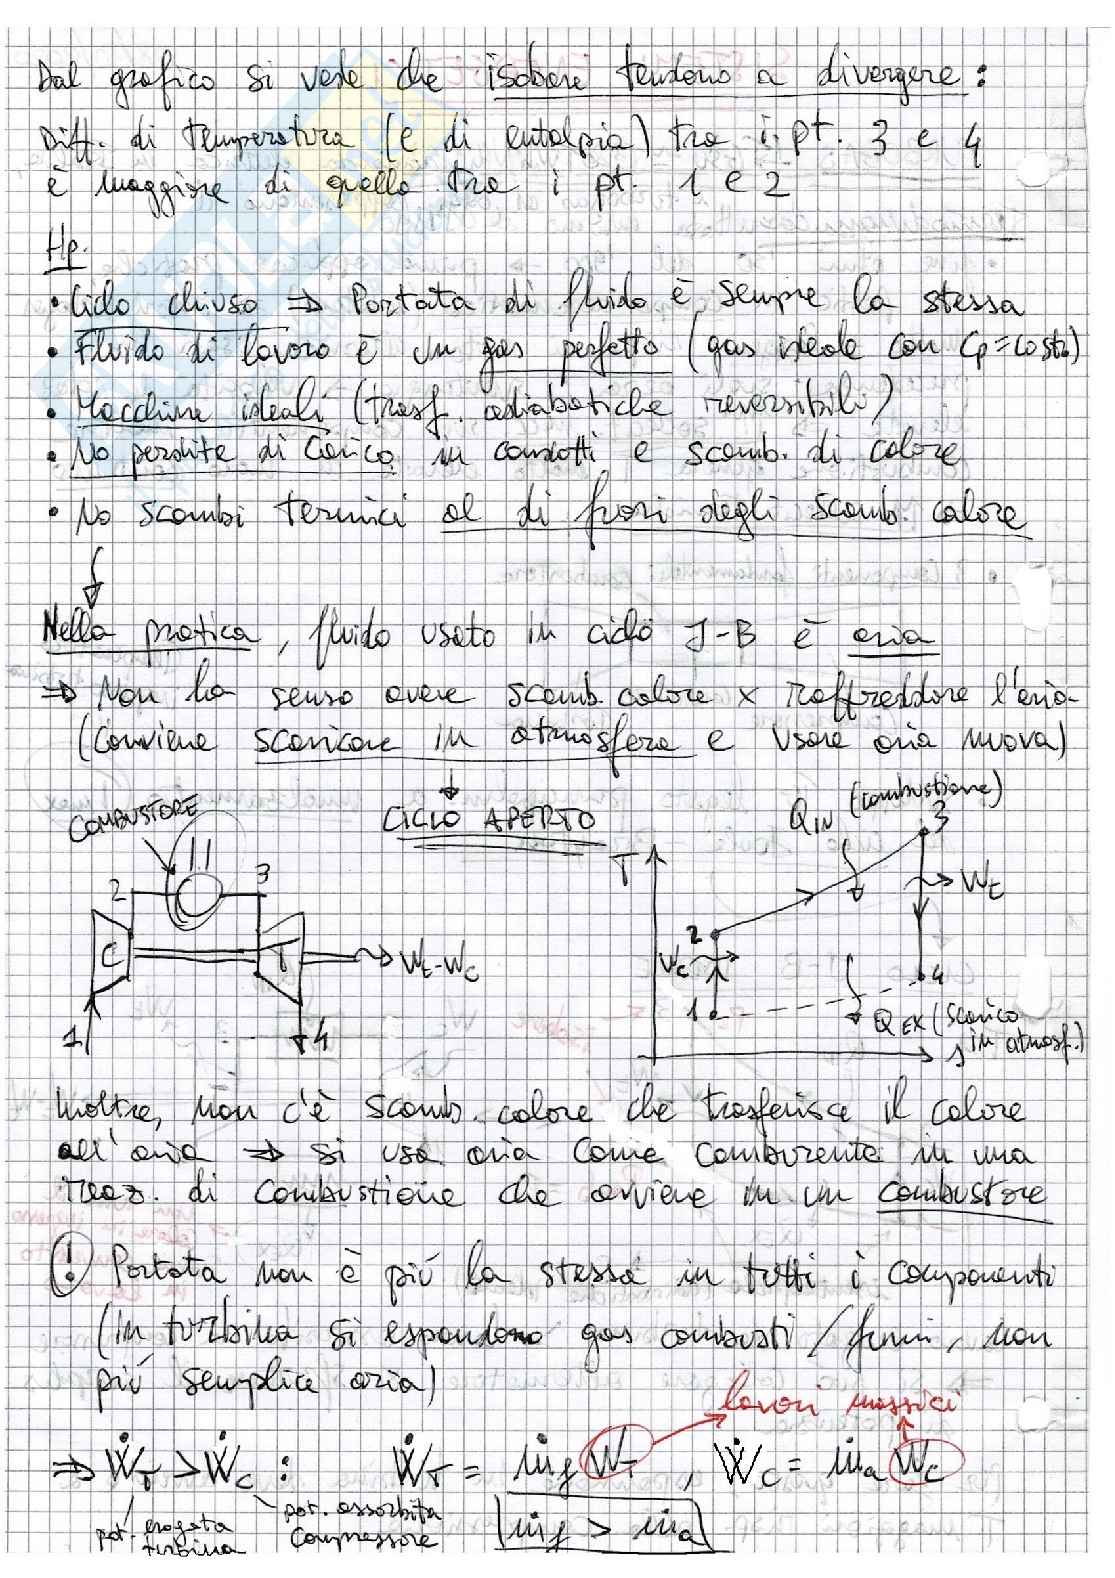 Dal grafico si vede che isobare tendono a divergere:
Diff. di temperatura (e di entalpia) tra i pt. 3 e 4
è maggiore di quella tra i pt. 1 e 2
Hp.
• Ciclo chiuso ⇒ Portata di fluido è sempre la stessa
• Fluido di lavoro è un gas perfetto (gas ideale con Cp=cost.)
• Macchine ideali (trasf. adiabatiche reversibili)
• No perdite di carico in condotti e scamb. di calore
• No scambi termici al di fuori degli scamb. calore
Nella pratica, fluido usato in ciclo J-B è aria
⇒ Non ha senso avere scamb. calore x raffreddare l'aria
(conviene scaricare in atmosfera e usare aria nuova)
CICLO APERTO
COMBUSTORE
2 3
C T
Wt-Wc
1 4
T
QIN (combustione)
3
Wt
2
Wc
4
1
QEX (scarico
in atmosf.)
s
Inoltre, non c'è scamb. calore che trasferisce il calore
all'aria ⇒ si usa aria come comburente in una
reaz. di combustione che avviene in un combustore
! Portata non è più la stessa in tutti i componenti
(in turbina si espandono gas combusti/fumi, non
più semplice aria)
lavori massici
⇒ ẆT > ẆC : ẆT = ṁf WT , ẆC = ṁa WC
pot. erogata turbina
pot. assorbita compressore
ṁf > ṁa